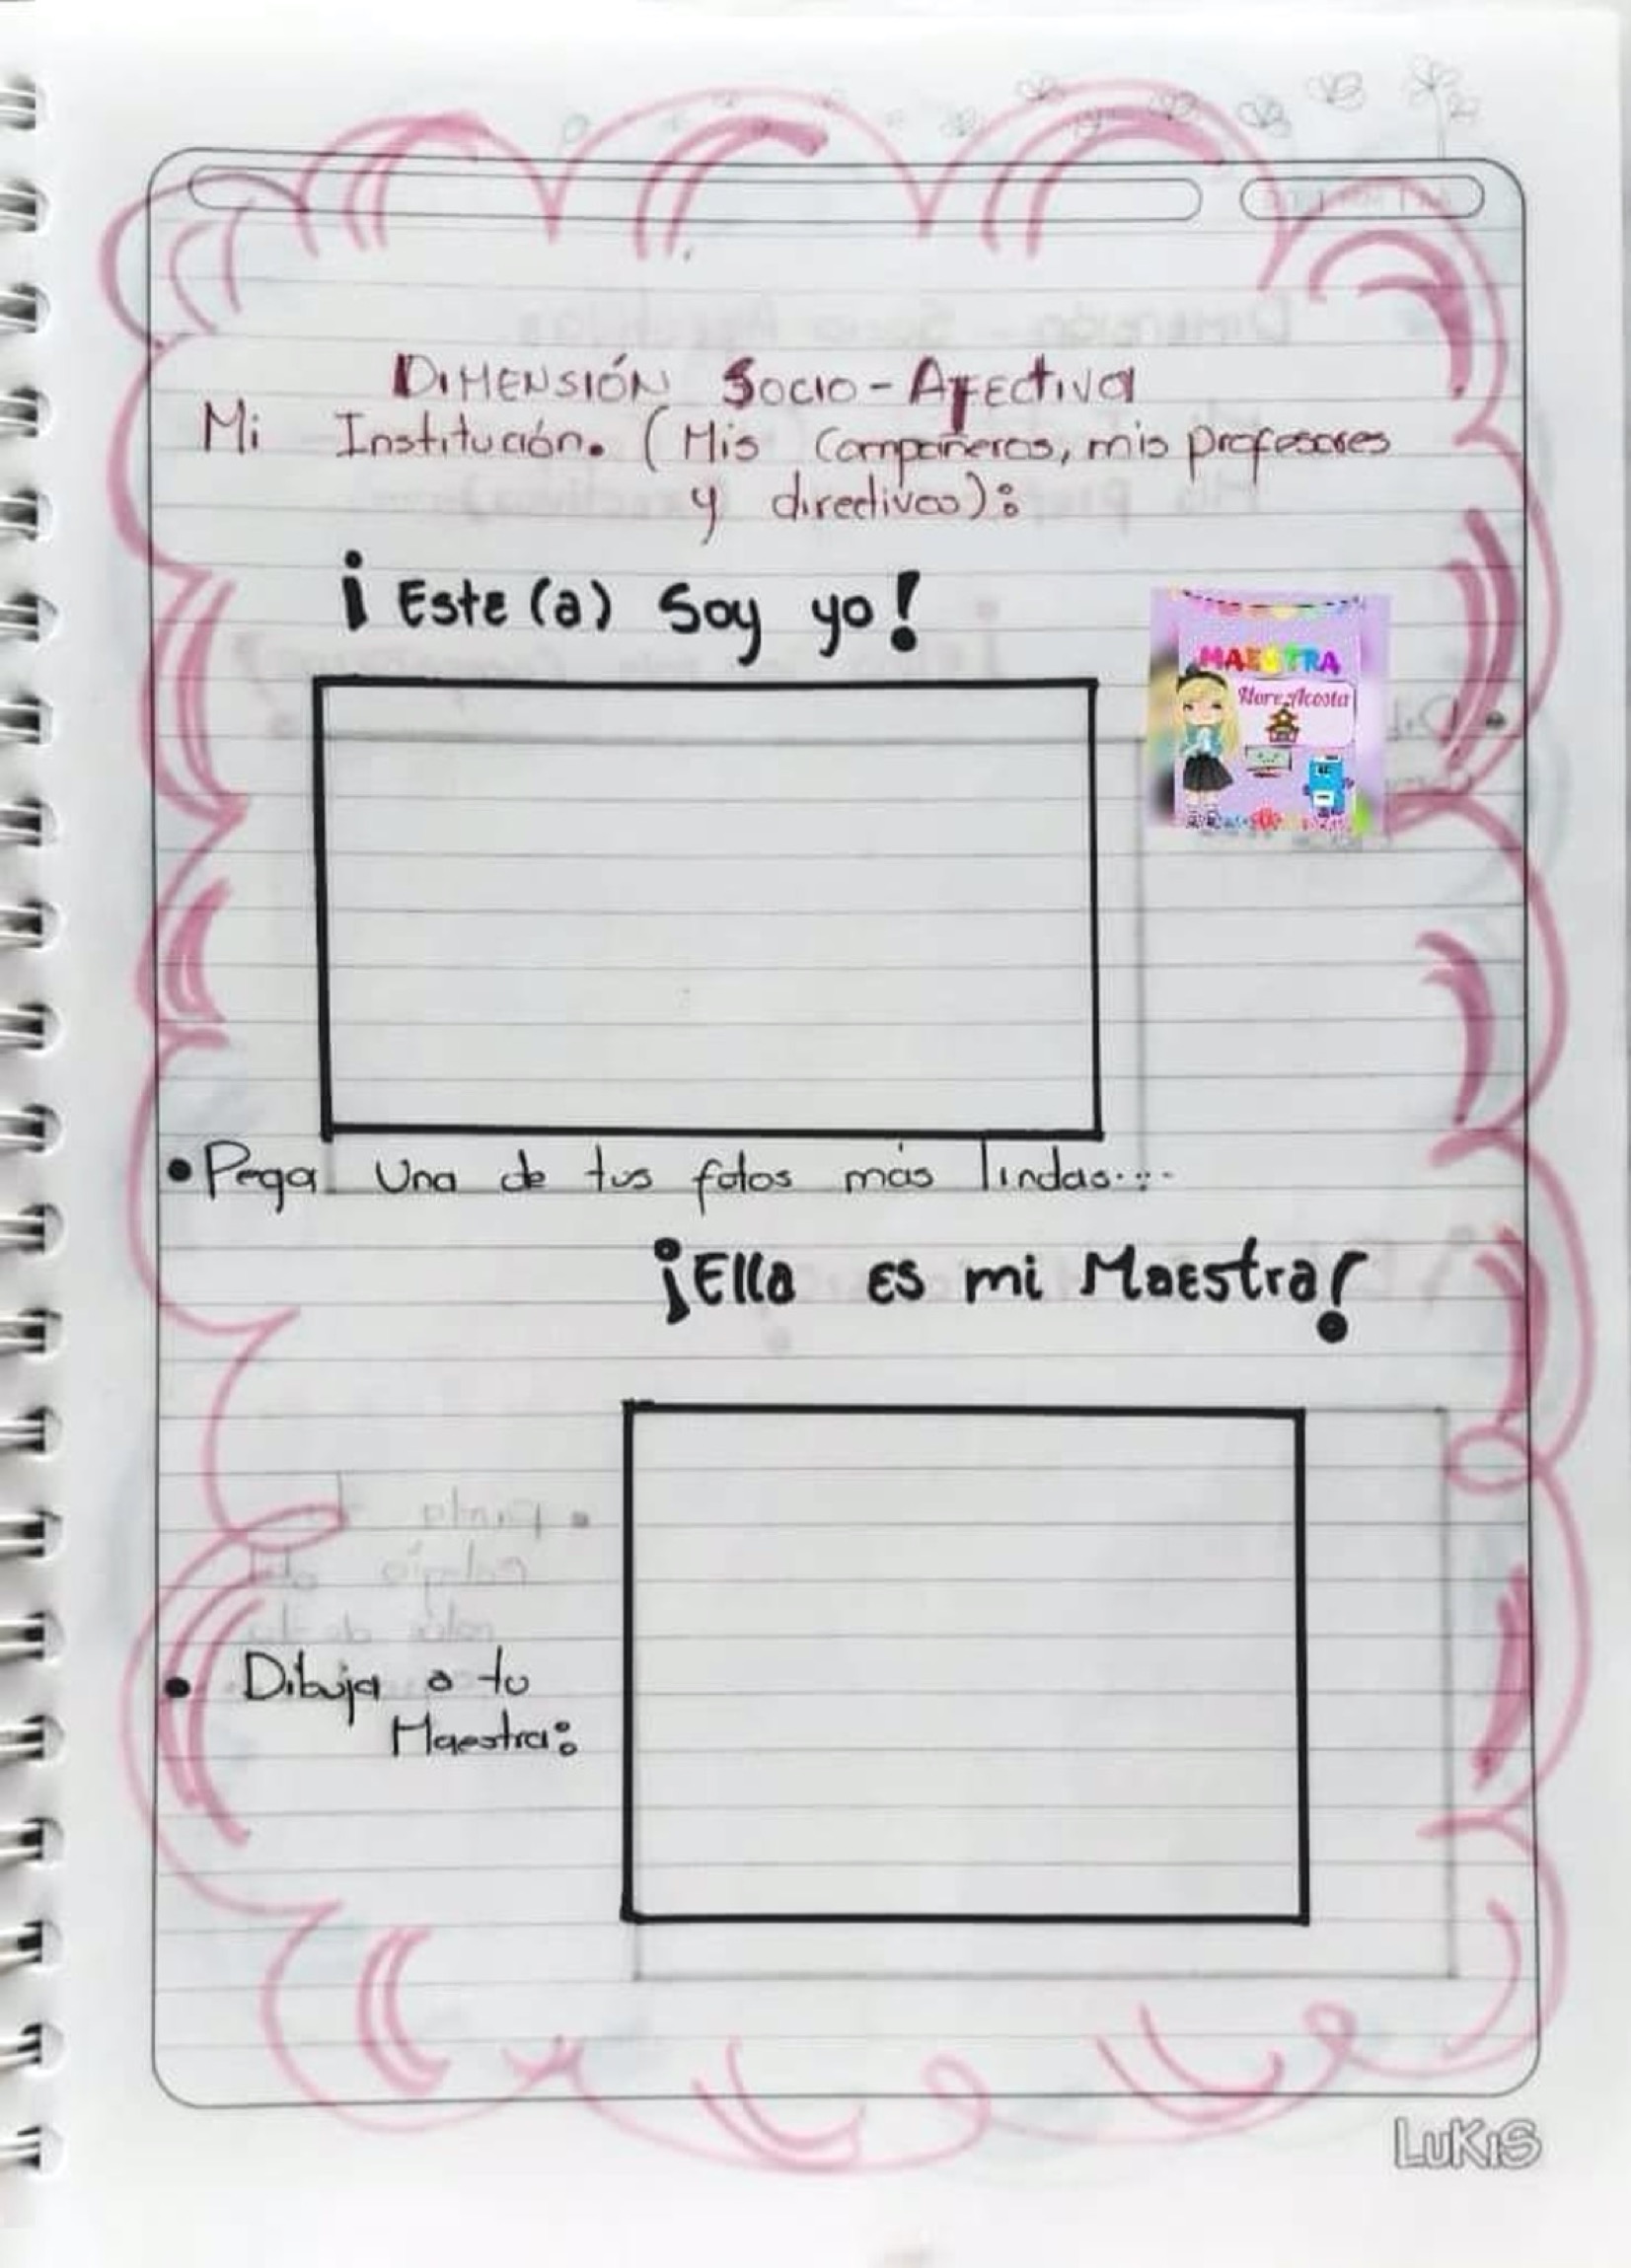 DIMENSIÓN SOCIO-AFECTIVA
Mi Institución. (Mis Compañeros, mis profesores
y directivos):
¡Este(a) Soy yo!
MAESTRA
Acosta
• Pega una de tus fotos más lindas...
¡Ella es mi Maestra!
• Dibuja a tu
Maestra:
LUKIS